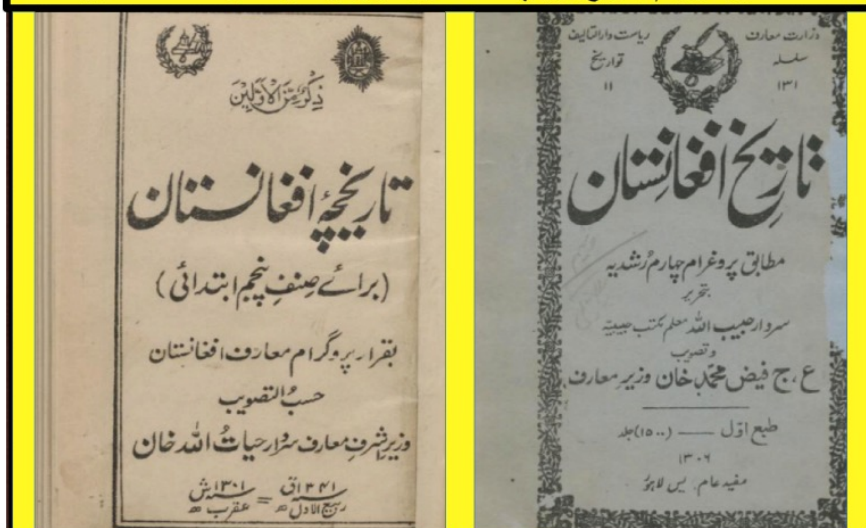 ذِکرٌ مِّنَ الْاَوَّلِین
تاریخچهٔ افغانستان
(برائے صنفِ پنجم ابتدائی)
بقرار پروگرام معارف افغانستان
حسبُ التصویب
وزیر شرفِ معارف سردار حیاتُ اللہ خان
سنہ ۱۳۴۱ق = سنہ ۱۳۰۱ش
ربیع الاول = عقرب
وزارت معارف ریاست دارالتالیف
سلسله تواریخ
۱۳۱ ۱۱
تاریخ افغانستان
مطابق پروغرام چہارم رُشدیہ
بتحریر
سردار حبیب اللہ معلم مکتب حبیبیہ
و تصویب
ع، ج فیض محمد خان وزیر معارف
طبع اوّل — (۱۵۰۰) جلد
۱۳۰۶
مفید عام پریس لاہور